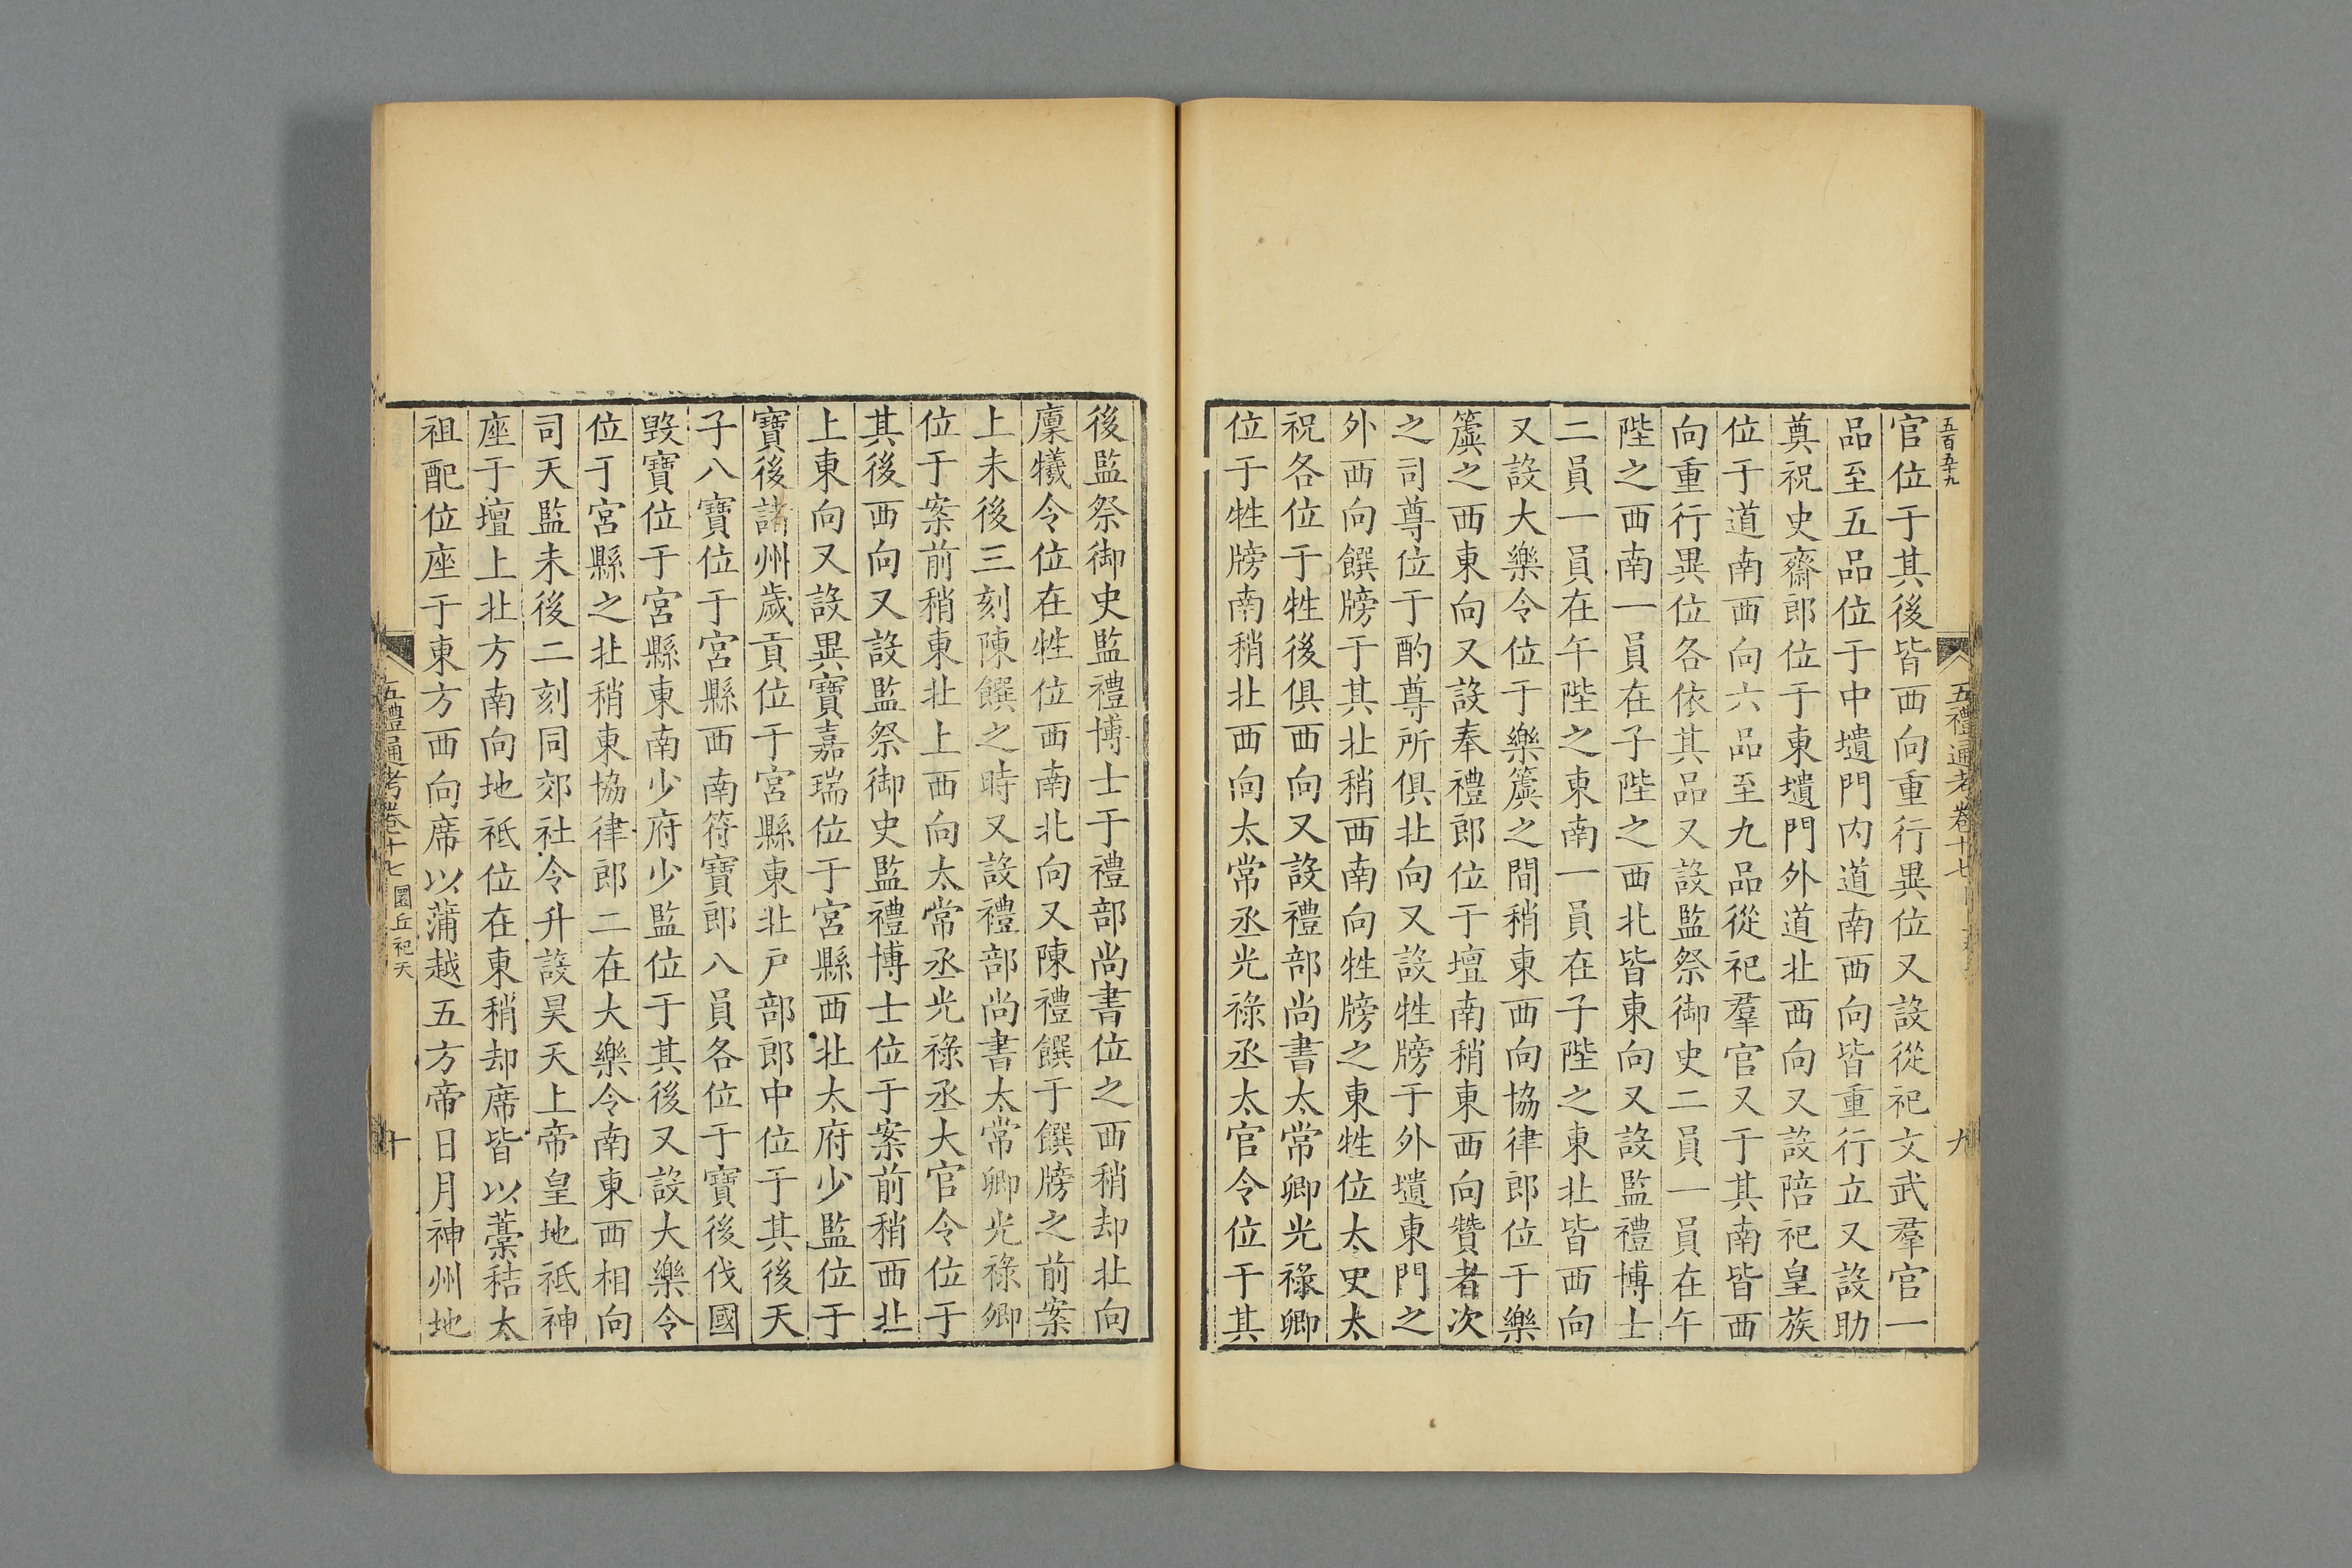 五百五十九
五禮通考卷十七
九
官位于其後皆西向重行異位又設從祀文武羣官一
品至五品位于中壝門内道南西向皆重行立又設助
奠祝史齋郎位于東壝門外道北西向又設陪祀皇族
位于道南西向六品至九品從祀羣官又于其南皆西
向重行異位各依其品又設監祭御史二員一員在午
陛之西南一員在子陛之西北皆東向又設監禮博士
二員一員在午陛之東南一員在子陛之東北皆西向
又設大樂令位于樂簴之間稍東西向協律郎位于樂
簴之西東向又設奉禮郎位于壇南稍東西向贊者次
之司尊位于酌尊所俱北向又設牲牓于外壝東門之
外西向饌牓于其北稍西南向牲牓之東牲位太史太
祝各位于牲後俱西向又設禮部尚書太常卿光祿卿
位于牲牓南稍北西向太常丞光祿丞太官令位于其
後監祭御史監禮博士于禮部尚書位之西稍却北向
廩犧令位在牲位西南北向又陳禮饌于饌牓之前案
上未後三刻陳饌之時又設禮部尚書太常卿光祿卿
位于案前稍東北上西向太常丞光祿丞大官令位于
其後西向又設監祭御史監禮博士位于案前稍西北
上東向又設異寶嘉瑞位于宮縣西北太府少監位于
寶後諸州歲貢位于宮縣東北戸部郎中位于其後天
子八寶位于宮縣西南符寶郎八員各位于寶後伐國
毀寶位于宮縣東南少府少監位于其後又設大樂令
位于宮縣之北稍東協律郎二在大樂令南東西相向
司天監未後二刻同郊社令升設昊天上帝皇地祇神
座于壇上北方南向地祇位在東稍却席皆以藁秸太
祖配位座于東方西向席以蒲越五方帝日月神州地
五禮通考卷十七 圜丘祀天
十